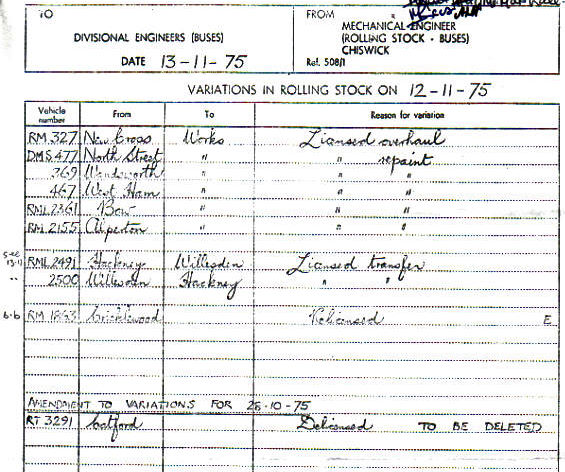 TO
DIVISIONAL ENGINEERS (BUSES)
DATE 13-11-75
FROM
MECHANICAL ENGINEER
(ROLLING STOCK - BUSES)
CHISWICK
Ref. 508/1
VARIATIONS IN ROLLING STOCK ON 12-11-75
Vehicle number From To Reason for variation
RM 327 New Cross Works Licensed overhaul
DMS 477 North Street " " repaint
369 Wandsworth " " "
467 West Ham " " "
RML 2361 Bow " " "
RM 2155 Alperton " " "
RML 2491 Hackney Willesden Licensed transfer
2500 Willesden Hackney " "
RM Cricklewood Relicensed E
AMENDMENT TO VARIATIONS FOR 28-10-75
RT 3291 Catford Delicensed TO BE DELETED